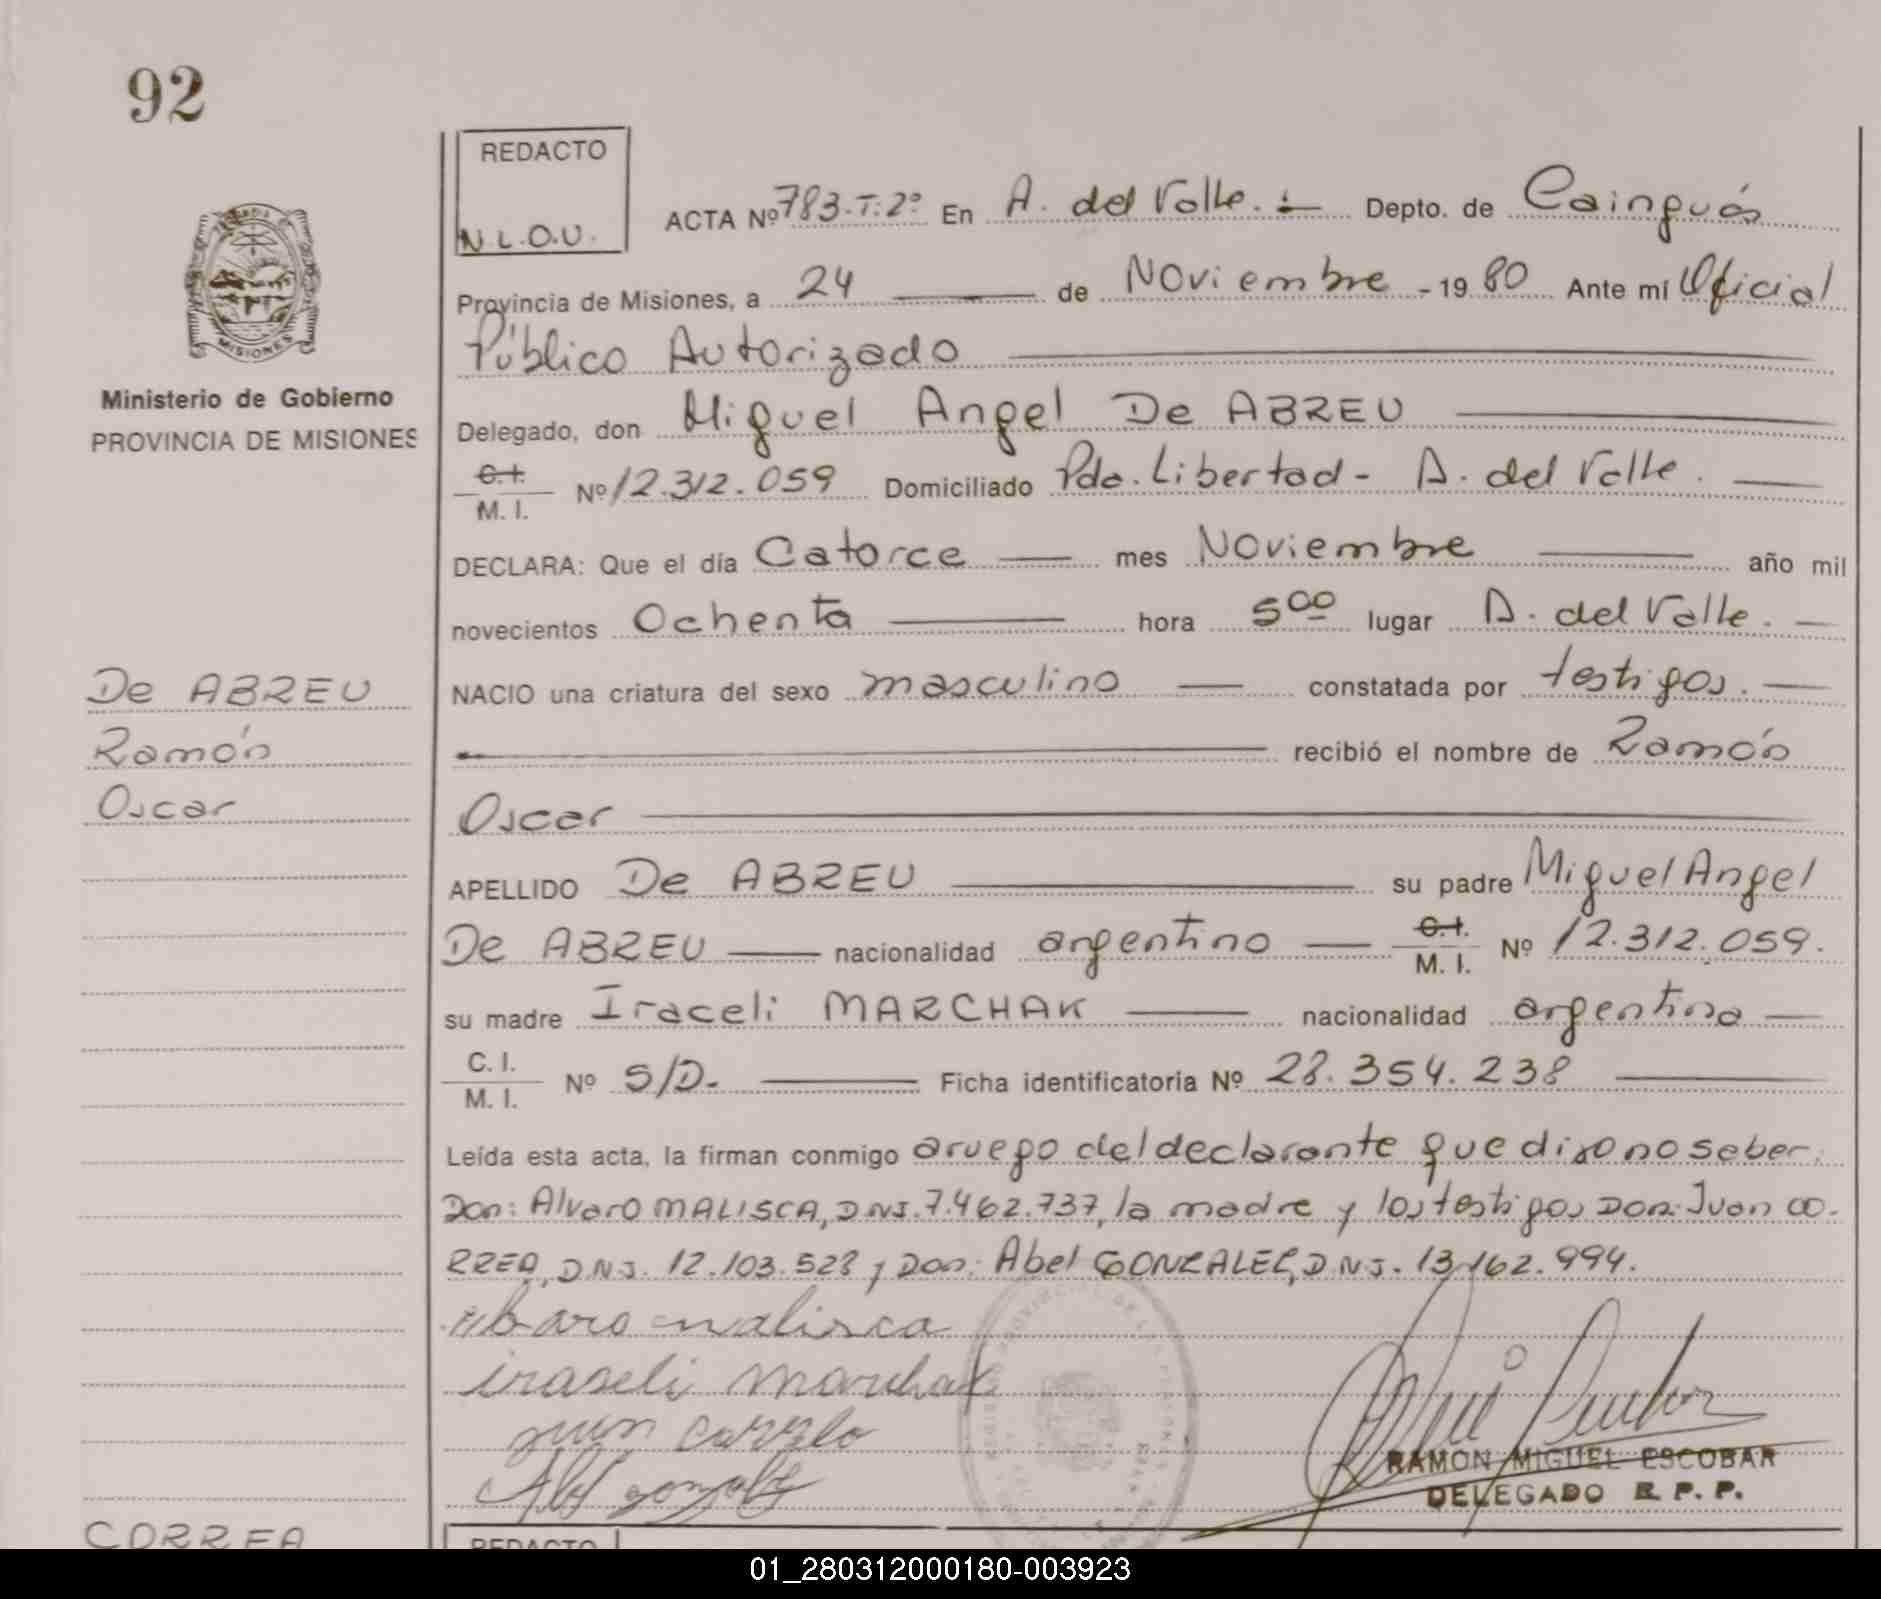 92
REDACTO
N.L.O.U.
ACTA Nº 783-T:2º En A. del Valle. Depto. de Cainguás
Provincia de Misiones, a 24 de Noviembre - 1980 Ante mí Oficial
Público Autorizado
MISIONES
Ministerio de Gobierno
PROVINCIA DE MISIONES
Delegado, don Miguel Angel De ABREU
C.I. / M. I. Nº 12.312.059 Domiciliado Pdo. Libertad - A. del Valle.
DECLARA: Que el día Catorce mes Noviembre año mil
novecientos Ochenta hora 5 00 lugar A. del Valle.
De ABREU
Ramón
Oscar
NACIO una criatura del sexo masculino constatada por testigos.
recibió el nombre de Ramón
Oscar
APELLIDO De ABREU su padre Miguel Angel
De ABREU nacionalidad argentino C.I. / M. I. Nº 12.312.059.
su madre Iraceli MARCHAK nacionalidad argentina
C. I. / M. I. Nº S/D. Ficha identificatoria Nº 28.354.238
Leída esta acta, la firman conmigo a ruego del declarante que dijo no saber.
Don: Alvaro MALISCA, DNI. 7.462.737, la madre y los testigos Don: Juan CO-
RREA, DNI. 12.103.528 y Don: Abel GONZALEZ, DNI. 13.162.994.
Albaro malisca
iraseli marchak
juan
Abel gonzalez
RAMON MIGUEL ESCOBAR
DELEGADO R. P. P.
CORREA
REDACTO
01_280312000180-003923